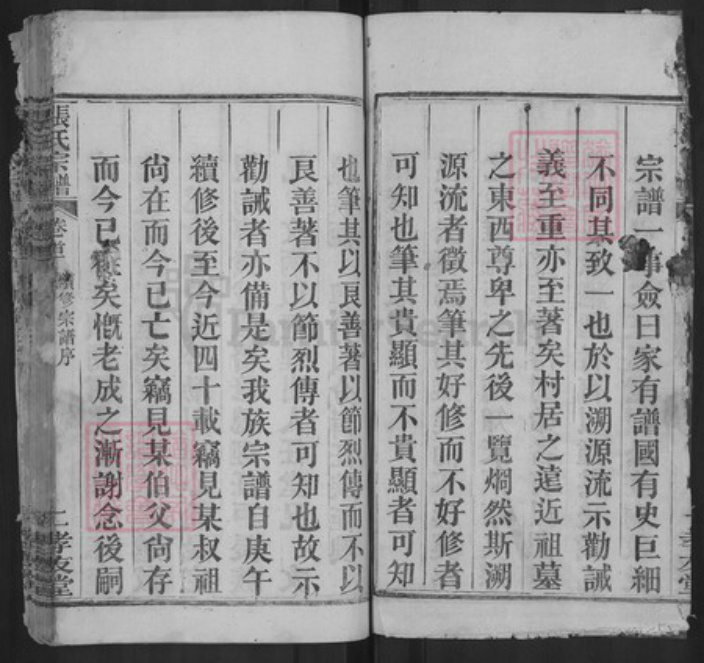 宗譜一事僉曰家有譜國有史巨細
不同其致一也於以溯源流示勸誡
義至重亦至著矣村居之遠近祖墓
之東西尊卑之先後一覽烱然斯溯
源流者徵焉筆其好修而不好修者
可知也筆其貴顯而不貴顯者可知
也筆其以良善著以節烈傳而不以
良善著不以節烈傳者可知也故示
勸誡者亦備是矣我族宗譜自庚午
續修後至今近四十載竊見某叔祖
尙在而今已亡矣竊見某伯父尙存
而今已矣慨老成之漸謝念後嗣
張氏宗譜 卷首 續修宗譜序 二 孝友堂